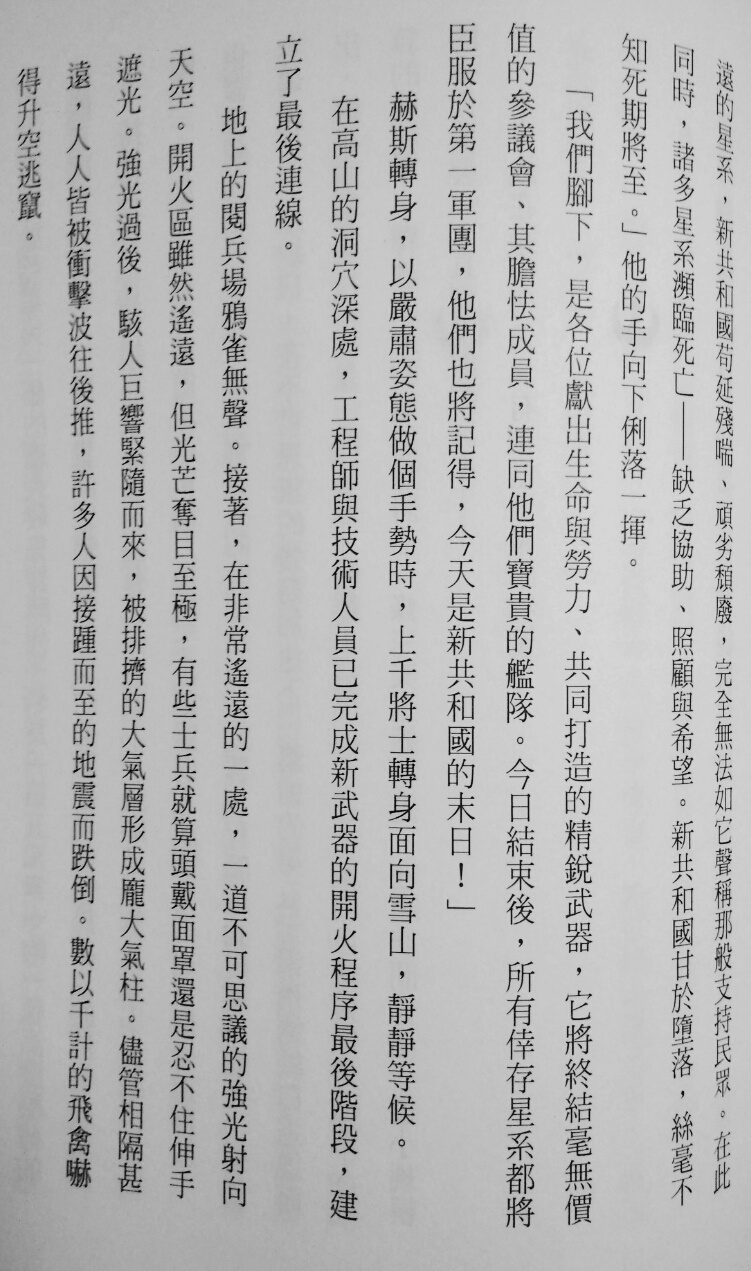 遠的星系，新共和國苟延殘喘、頑劣頹廢，完全無法如它聲稱那般支持民眾。在此
同時，諸多星系瀕臨死亡——缺乏協助、照顧與希望。新共和國甘於墮落，絲毫不
知死期將至。」他的手向下俐落一揮。
「我們腳下，是各位獻出生命與勞力、共同打造的精銳武器，它將終結毫無價
值的參議會、其膽怯成員，連同他們寶貴的艦隊。今日結束後，所有倖存星系都將
臣服於第一軍團，他們也將記得，今天是新共和國的末日！」
赫斯轉身，以嚴肅姿態做個手勢時，上千將士轉身面向雪山，靜靜等候。
在高山的洞穴深處，工程師與技術人員已完成新武器的開火程序最後階段，建
立了最後連線。
地上的閱兵場鴉雀無聲。接著，在非常遙遠的一處，一道不可思議的強光射向
天空。開火區雖然遙遠，但光芒奪目至極，有些士兵就算頭戴面罩還是忍不住伸手
遮光。強光過後，駭人巨響緊隨而來，被排擠的大氣層形成龐大氣柱。儘管相隔甚
遠，人人皆被衝擊波往後推，許多人因接踵而至的地震而跌倒。數以千計的飛禽嚇
得升空逃竄。